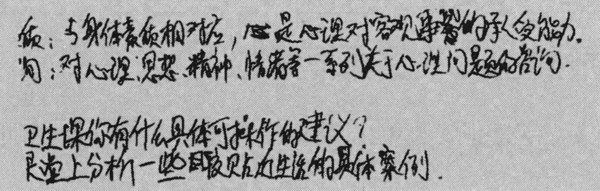 质：与身体素质相对应，心是心理对客观事物的承受能力.
询：对心理、思想、精神、情绪等一系列关于心理问题的咨询.
卫生课你有什么具体可操作的建议？
课堂上分析一些较贴近生活的具体案例.